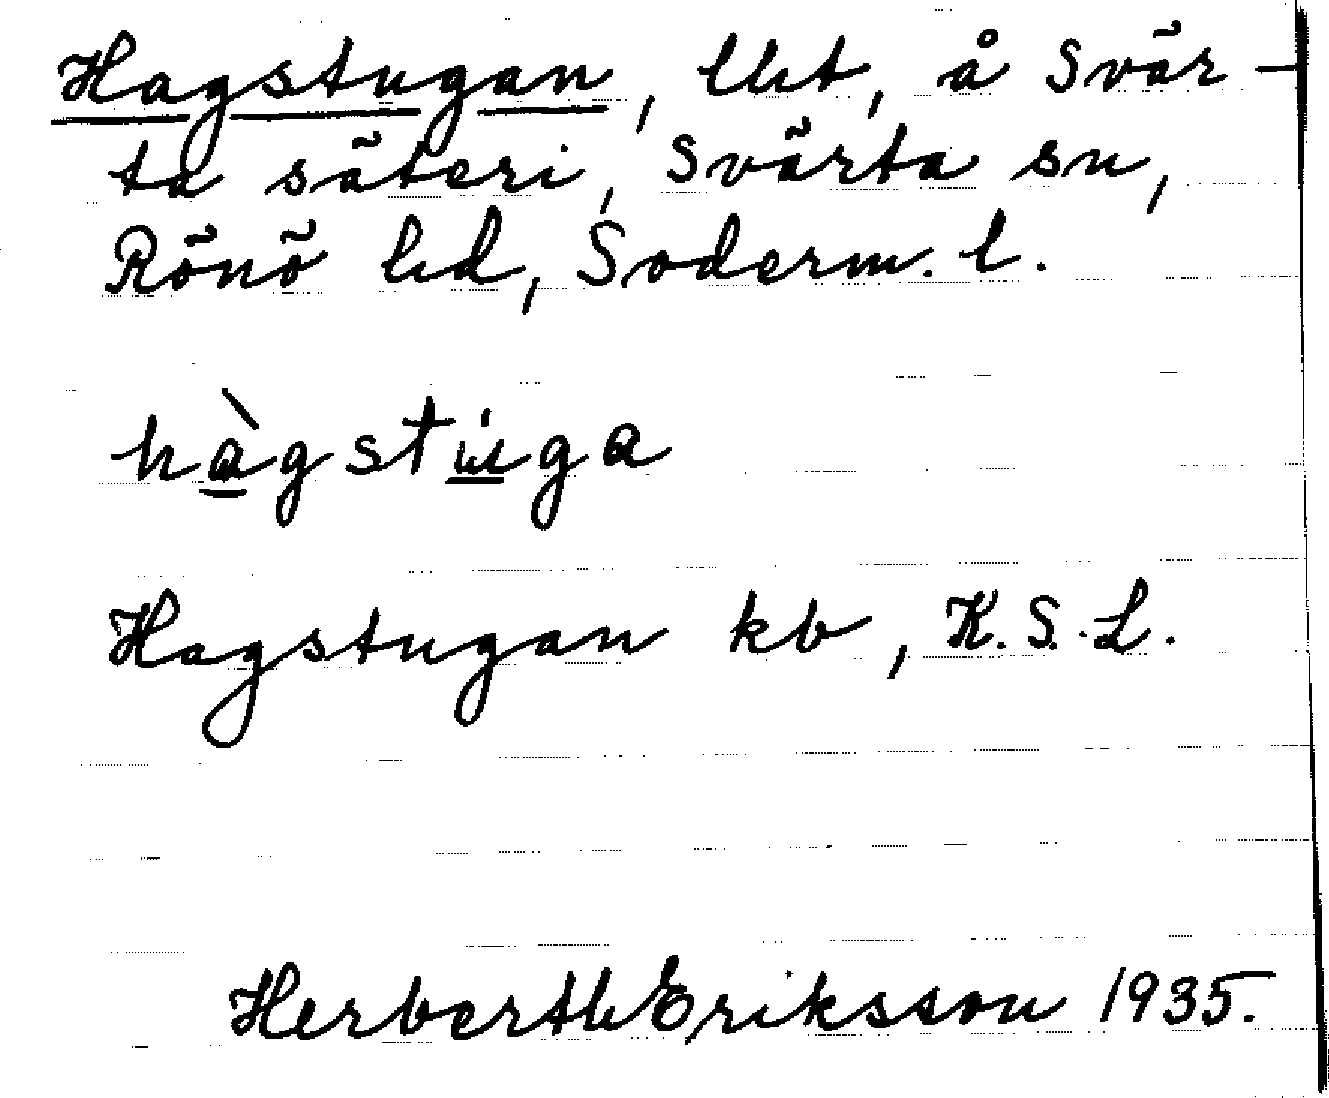 Hagstugan, lht, å Svär-
ta säteri, Svärta sn,
Rönö hd, Söderm. l.
hàgstúga
Hagstugan kb, K.S.L.
Herbert Eriksson 1935.